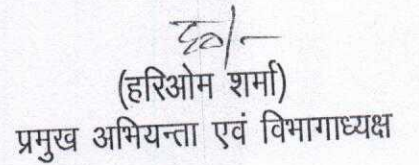 ह०/-
(हरिओम शर्मा)
प्रमुख अभियन्ता एवं विभागाध्यक्ष